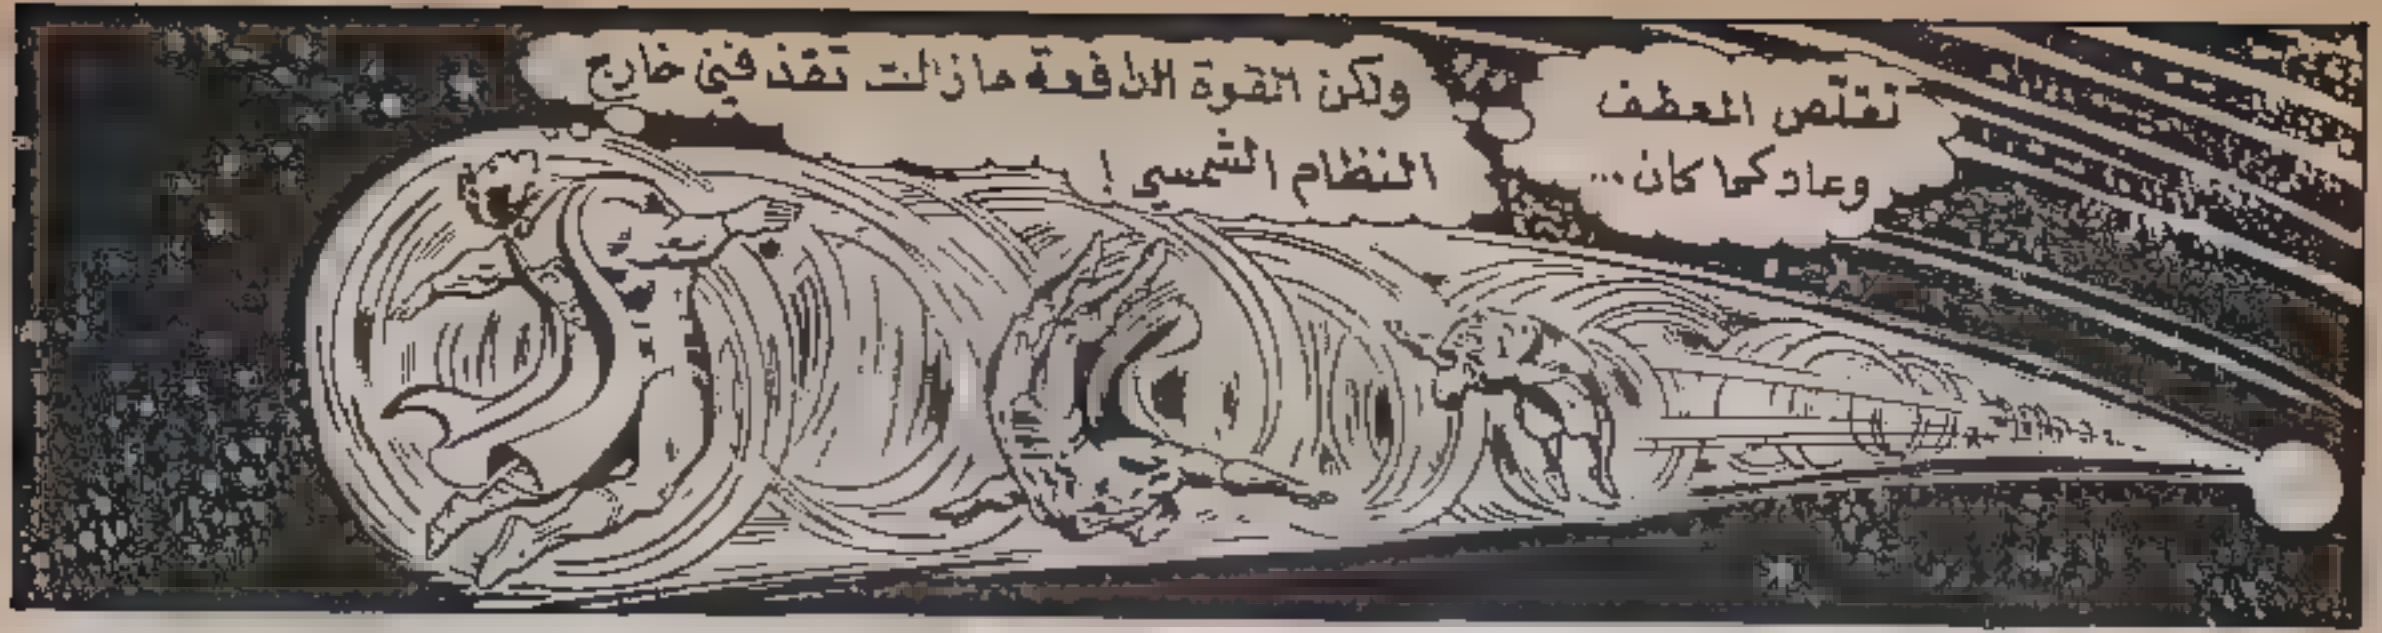 تقلّص المعطف
وعاد كما كان...
ولكن القوة الدافعة مازالت تقذفني خارج
النظام الشمسي!